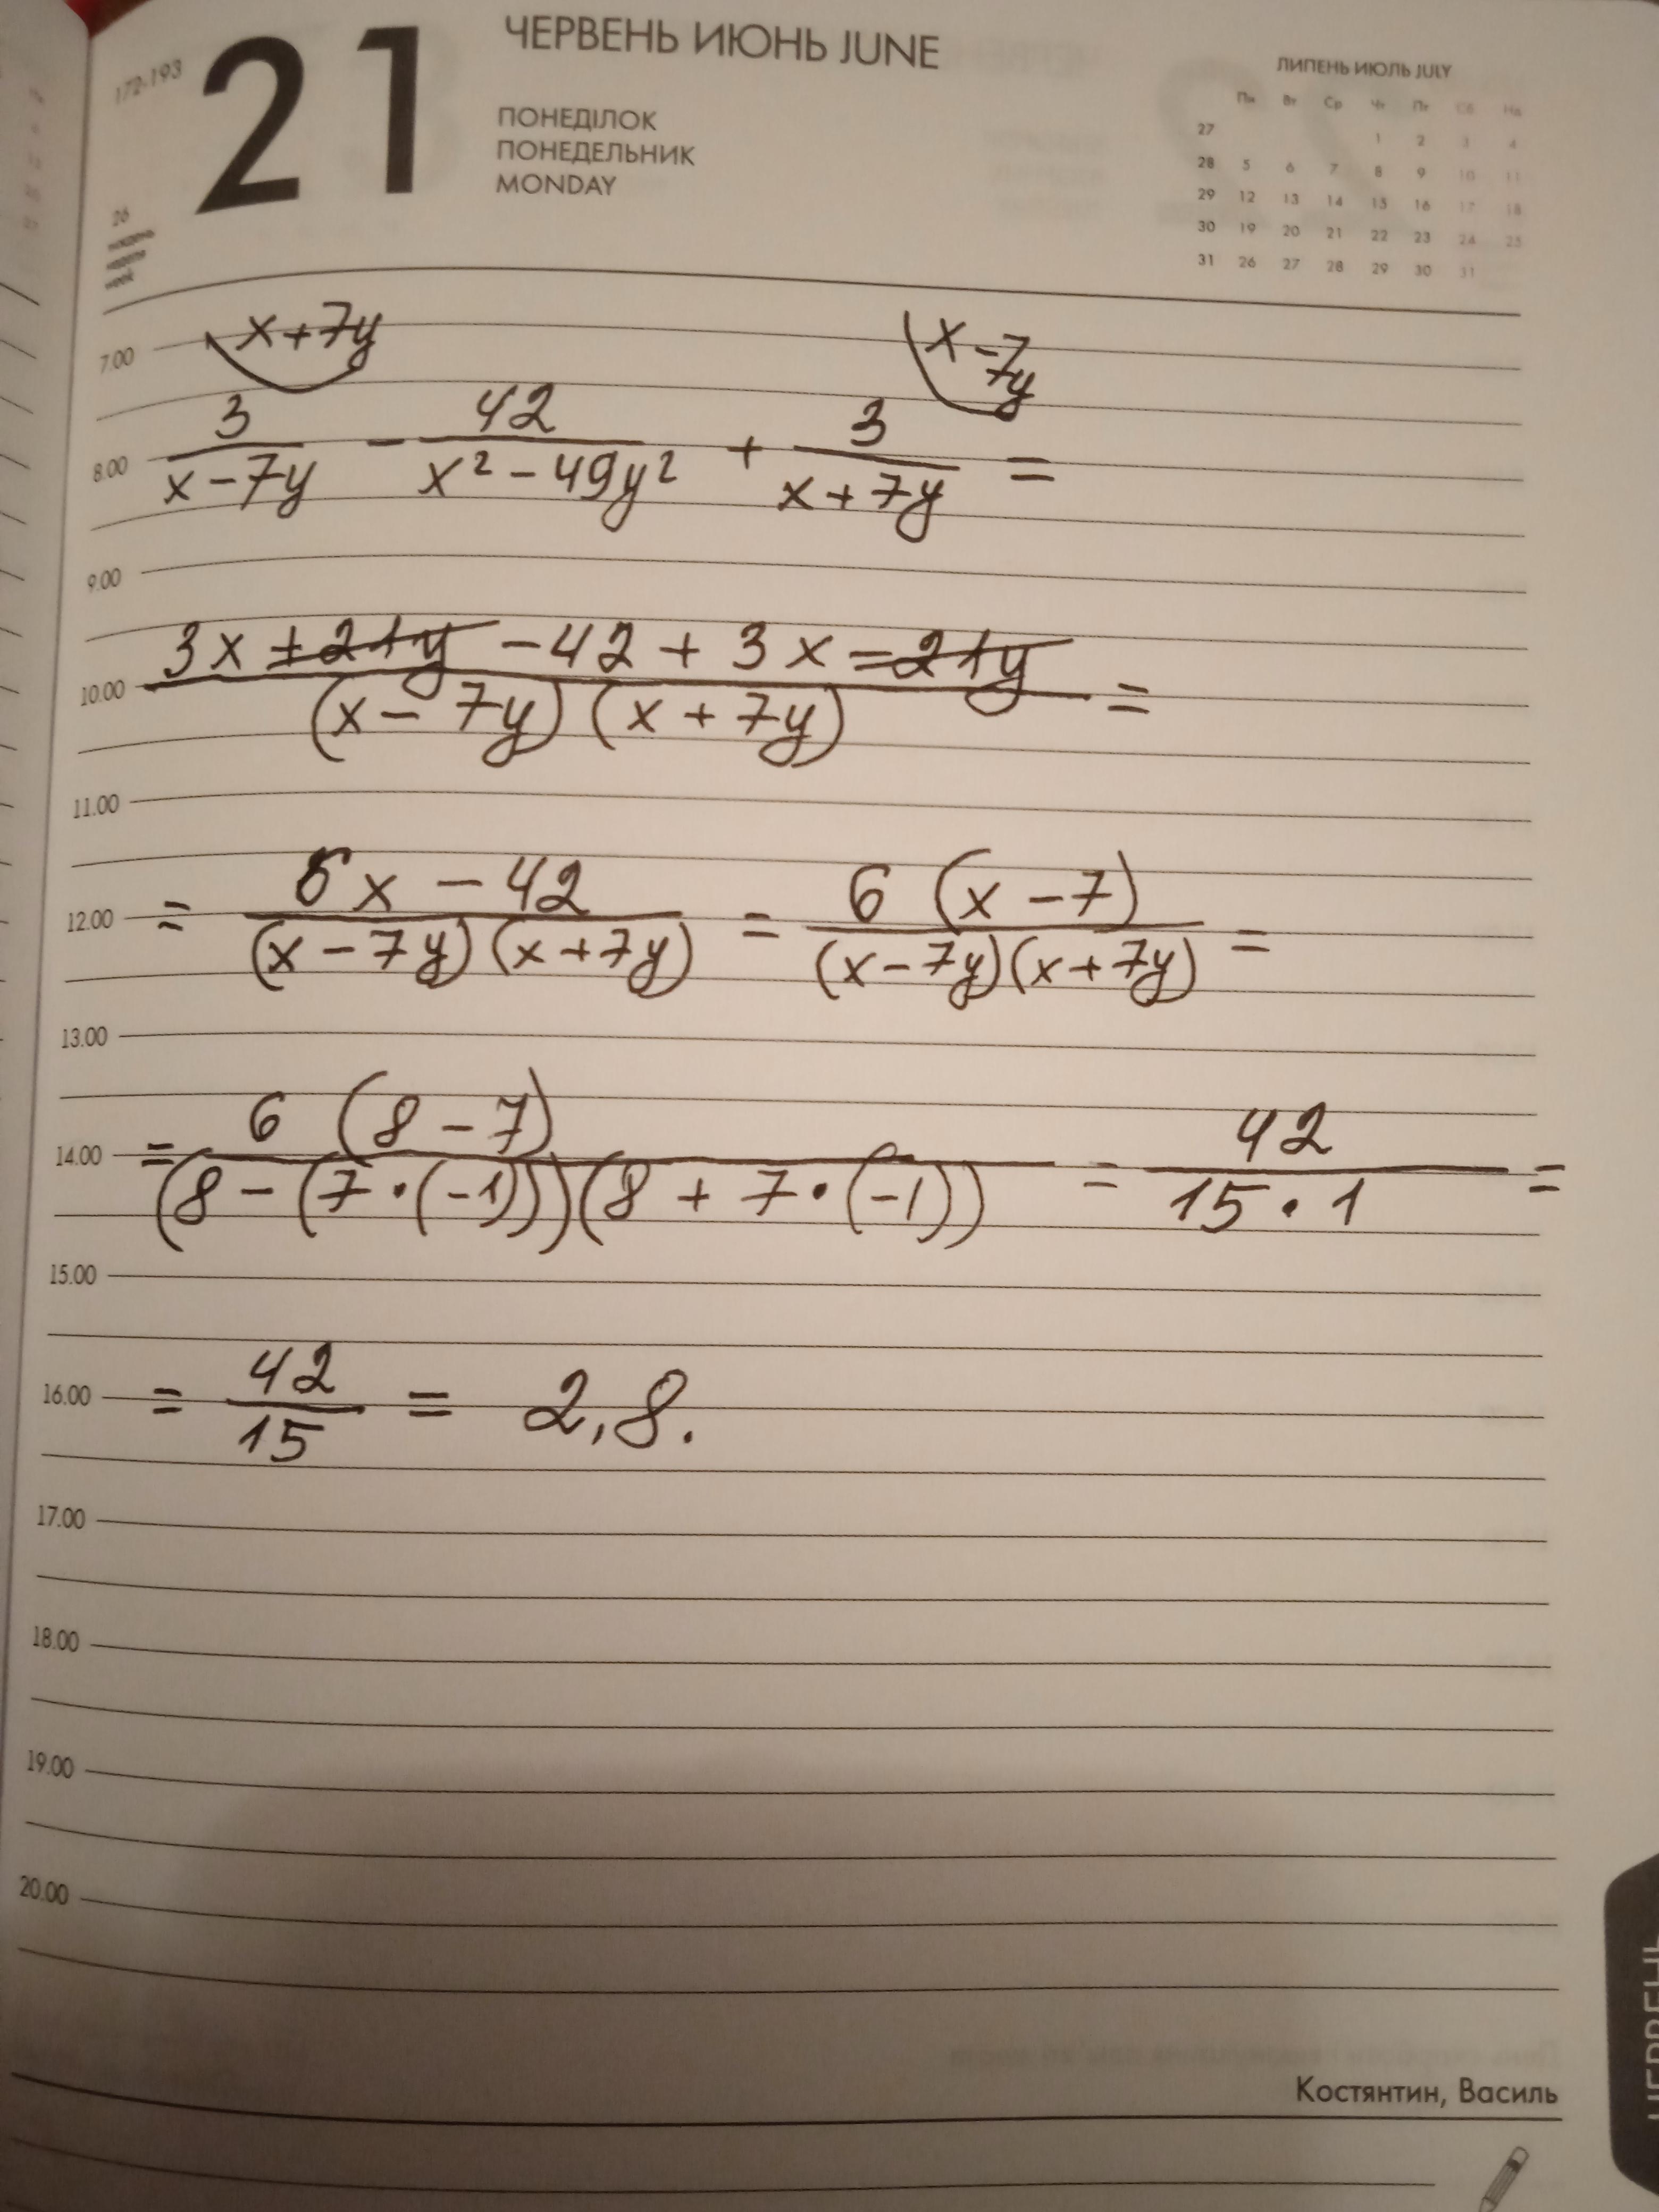 172-193
21
ЧЕРВЕНЬ ИЮНЬ JUNE
ПОНЕДІЛОК
ПОНЕДЕЛЬНИК
MONDAY
26
тиждень
неделя
week
ЛИПЕНЬ ИЮЛЬ JULY
Пн Вт Ср Чт Пт Сб Нд
27 1 2 3 4
28 5 6 7 8 9 10 11
29 12 13 14 15 16 17 18
30 19 20 21 22 23 24 25
31 26 27 28 29 30 31
7.00 x+7y x-7y
8.00 3/(x-7y) - 42/(x²-49y²) + 3/(x+7y) =
9.00
10.00 (3x+21y-42+3x-21y)/((x-7y)(x+7y)) =
11.00
12.00 = (6x-42)/((x-7y)(x+7y)) = 6(x-7)/((x-7y)(x+7y)) =
13.00
14.00 = 6(8-7)/((8-(7·(-1)))(8+7·(-1))) = 42/(15·1) =
15.00
16.00 = 42/15 = 2,8.
17.00
18.00
19.00
20.00
Костянтин, Василь
ЧЕРВЕНЬ